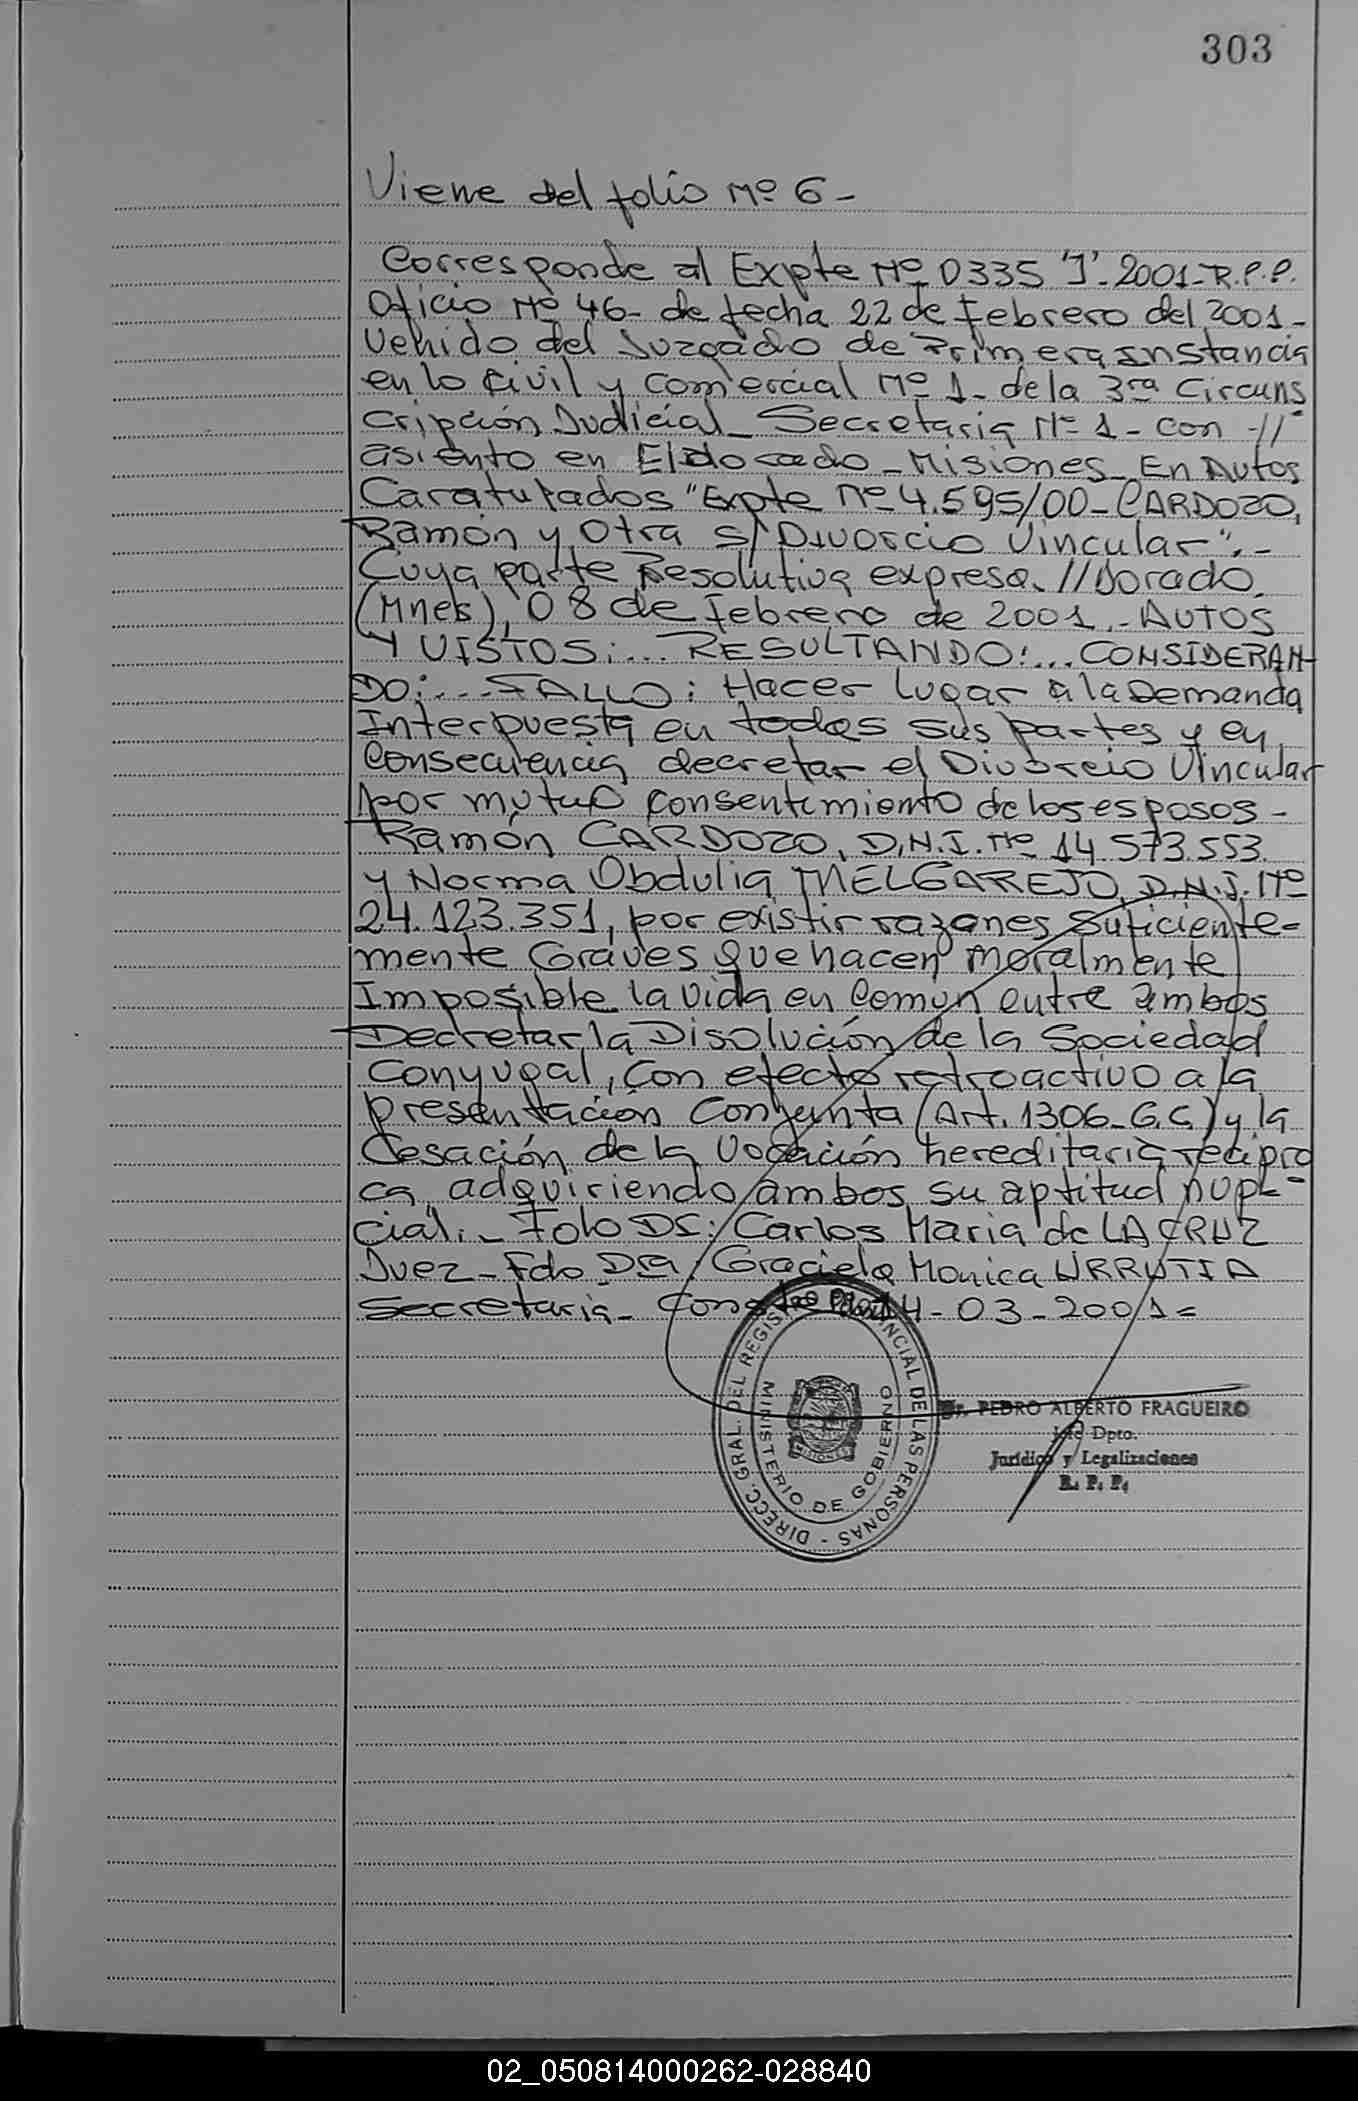 303
Viene del folio Nº 6-
Corresponde al Expte Nº 0335 "J" 2001-R.P.P.
Oficio Nº 46- de fecha 22 de Febrero del 2001-
Venido del Juzgado de Primera Instancia
en lo Civil y Comercial Nº 1- de la 3ra Circuns
cripción Judicial- Secretaria Nº 1- con //
asiento en Eldorado- Misiones- En Autos
Caratulados "Expte Nº 4.595/00- CARDOZO,
Ramón y Otra s/ Divorcio Vincular".-
Cuya parte Resolutiva expresa. //Dorado.
(Mnes), 08 de Febrero de 2001.- AUTOS
Y VISTOS:... RESULTANDO:... CONSIDERAN-
DO:... FALLO: Hacer lugar a la Demanda
Interpuesta en todas sus partes y en
Consecuencia decretar el Divorcio Vincular
por mutuo consentimiento de los esposos-
Ramón CARDOZO, D.N.I. Nº 14.573.553.
y Norma Obdulia MELGAREJO, D.N.I. Nº
24.123.351, por existir razones suficiente=
mente Graves que hacen moralmente
Imposible la vida en Comun entre ambos
Decretar la Disolución de la Sociedad
Conyugal, Con efecto retroactivo a la
presentación Conjunta (Art. 1306- C.C) y la
Cesación de la Vocación hereditaria recipro
ca, adquiriendo ambos su aptitud nup-
cial.- Fdo DS: Carlos Maria de LA CRUZ
Juez- Fdo Dra, Graciela Monica URRUTIA
Secretaria- 14-03-2001=
DIRECC. GRAL. DEL REGISTRO PROVINCIAL DE LAS PERSONAS -
MINISTERIO DE GOBIERNO
MISIONES
Dr. PEDRO ALBERTO FRAGUEIRO
Jefe Dpto.
Jurídico y Legalizaciones
R. P. P.
02_050814000262-028840